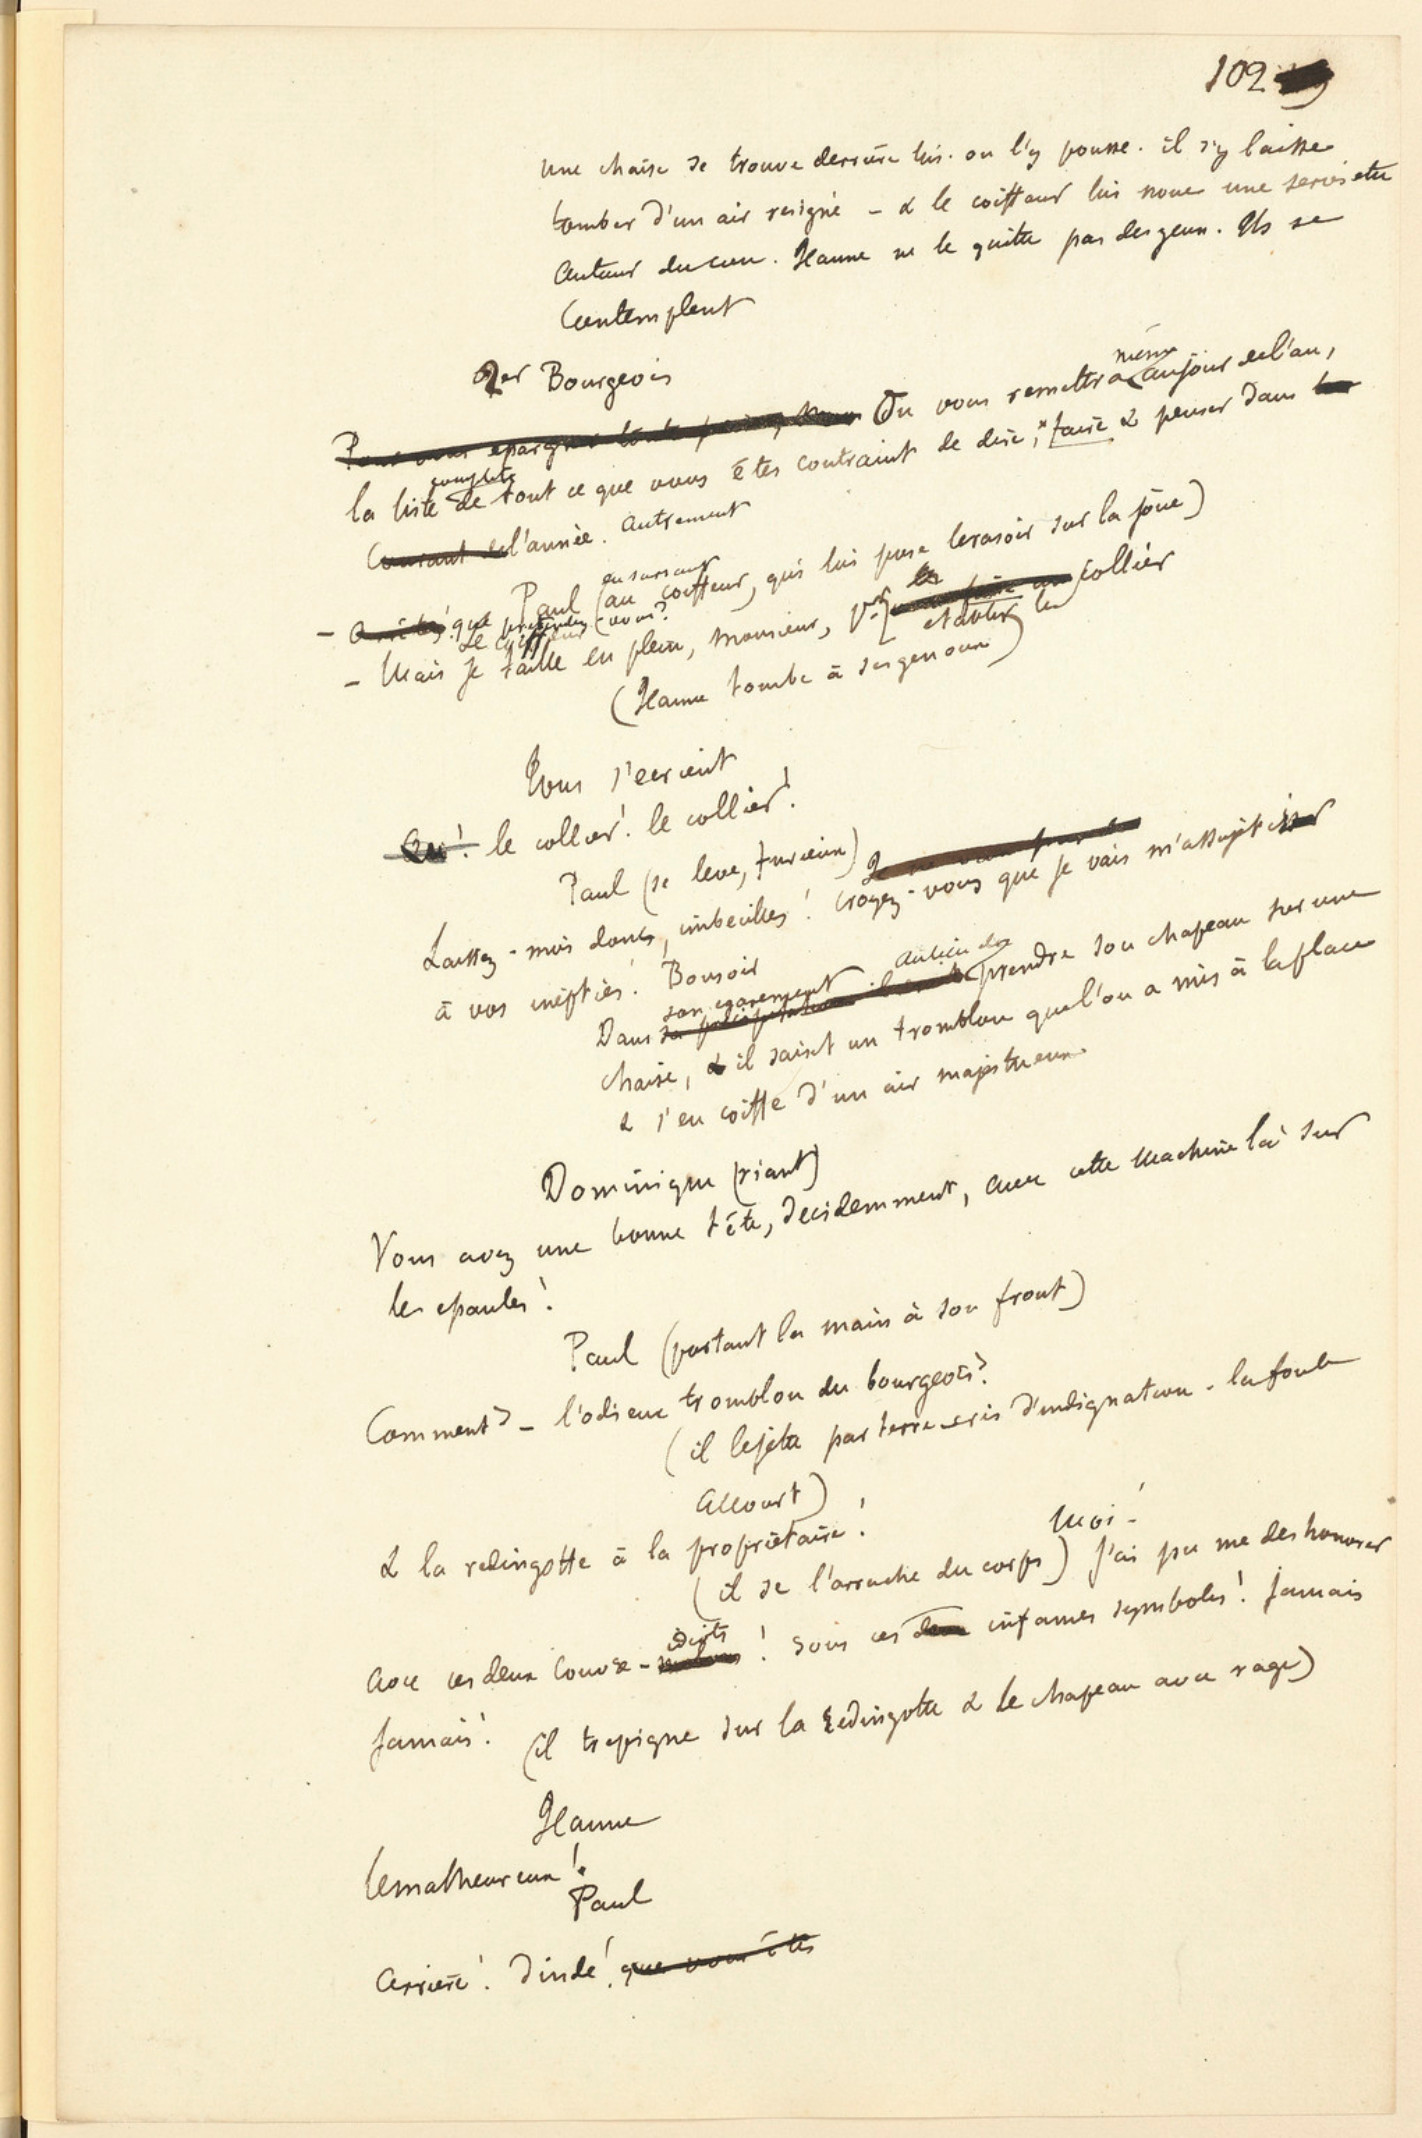 102
une chaise se trouve derrière lui. on l'y pousse. il s'y laisse
tomber d'un air resigné – & le coiffeur lui noue une serviette
autour du cou. Jeanne ne le quitte pas des yeux. Ils se
contemplent
Bourgeois
même
Pour vous epargner toute peine, On vous remettra au jour de l'an,
complète
la liste de tout ce que vous êtes contraint de dire, faire & penser dans
Courant de l'année. autrement
en sursaut
Paul (au coiffeur, qui lui pose le rasoir sur la joue)
– Arrêtez! que prétendez-vous?
Le coiffeur
– Mais je taille en plein, Monsieur, pr collier
établir le
(Jeanne tombe à ses genoux)
Tous s'ecrient
le collier! le collier!
Paul (se leve, furieux)
Laissez-moi donc, imbeciles! Croyez-vous que je vais m'assujetisser
à vos inepties! Bonsoir
son egarement au lieu de
Dans sa précipitation prendre son chapeau sur une
chaise, & il saisit un tromblon que l'on a mis à la place
& s'en coiffe d'un air majestueux
Dominique (riant)
Vous avez une bonne tête, decidemment, avec cette machine là sur
les epaules!
Paul (portant la main à son front)
Comment? – l'odieux tromblon du bourgeois?
(il le jette par terre – cris d'indignation – la foule
accourt)
& la redingotte à la propriétaire!
Moi!
(il se l'arrache du corps) j'ai pu me deshonorer
idiots
avec ces deux couvre- ! sous ces deux infames symboles! jamais
jamais! (il trepigne sur la redingotte & le chapeau avec rage)
Jeanne
le malheureux!
Paul
arrière! dinde! que vous êtes